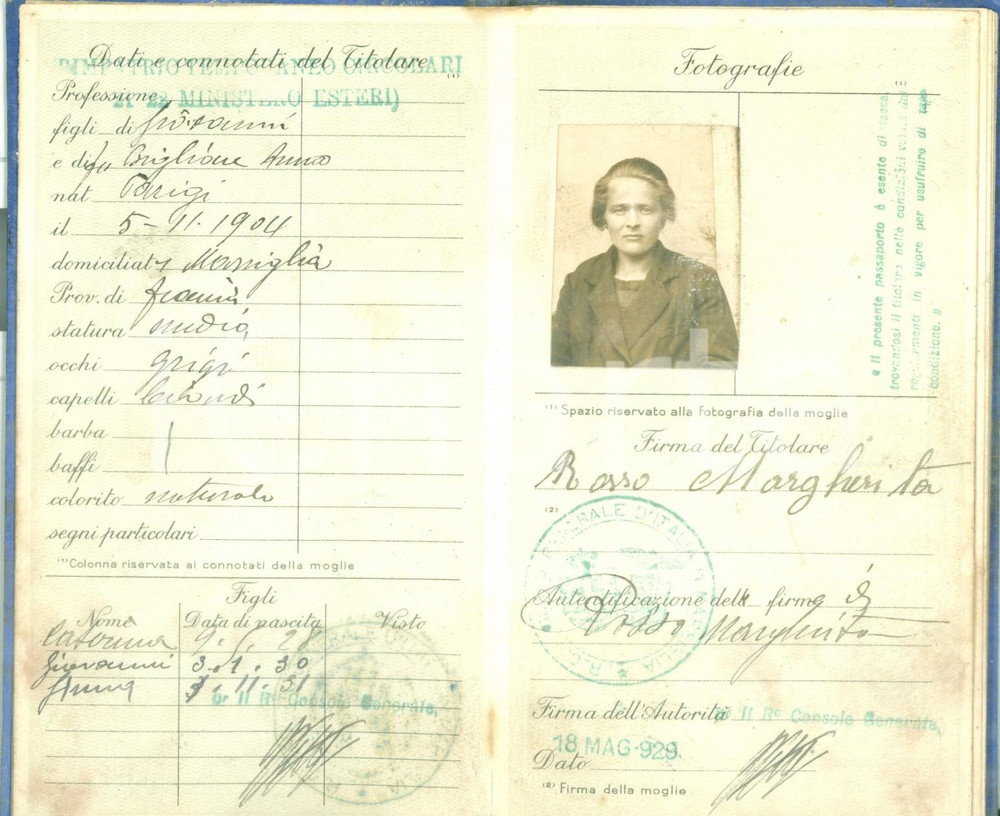 Dati e connotati del Titolare
(1)
RIMPATRIO TEMPORANEO CIRCOLARI
MINISTERO ESTERI)
Professione
figli di Giovanni
e di fu Anna
nat Parigi
il 5-11.1904
domiciliat Marsiglia
Prov. di Francia
statura media
occhi grigi
capelli biondi
barba
baffi
colorito naturale
segni particolari
(1) Colonna riservata ai connotati della moglie
Figli
Nome Data di nascita Visto
Caterina
Giovanni 3.1.30
Anna 11.31
pr Il Ro Console Generale,
Fotografie
(1)
e il presente passaporto è esente di tassa
trovandosi il titolare nelle condizioni volute dai
regolamenti in vigore per usufruire di tale
condizione. »
(1) Spazio riservato alla fotografia della moglie
Firma del Titolare
Rosso Margherita
(2)
GENERALE D'ITALIA MARSIGLIA
Autentificazione della firma di
Rosso Margherita
Firma dell'Autorità pr Il Ro Console Generale,
18 MAG 929
Dato
(2) Firma della moglie